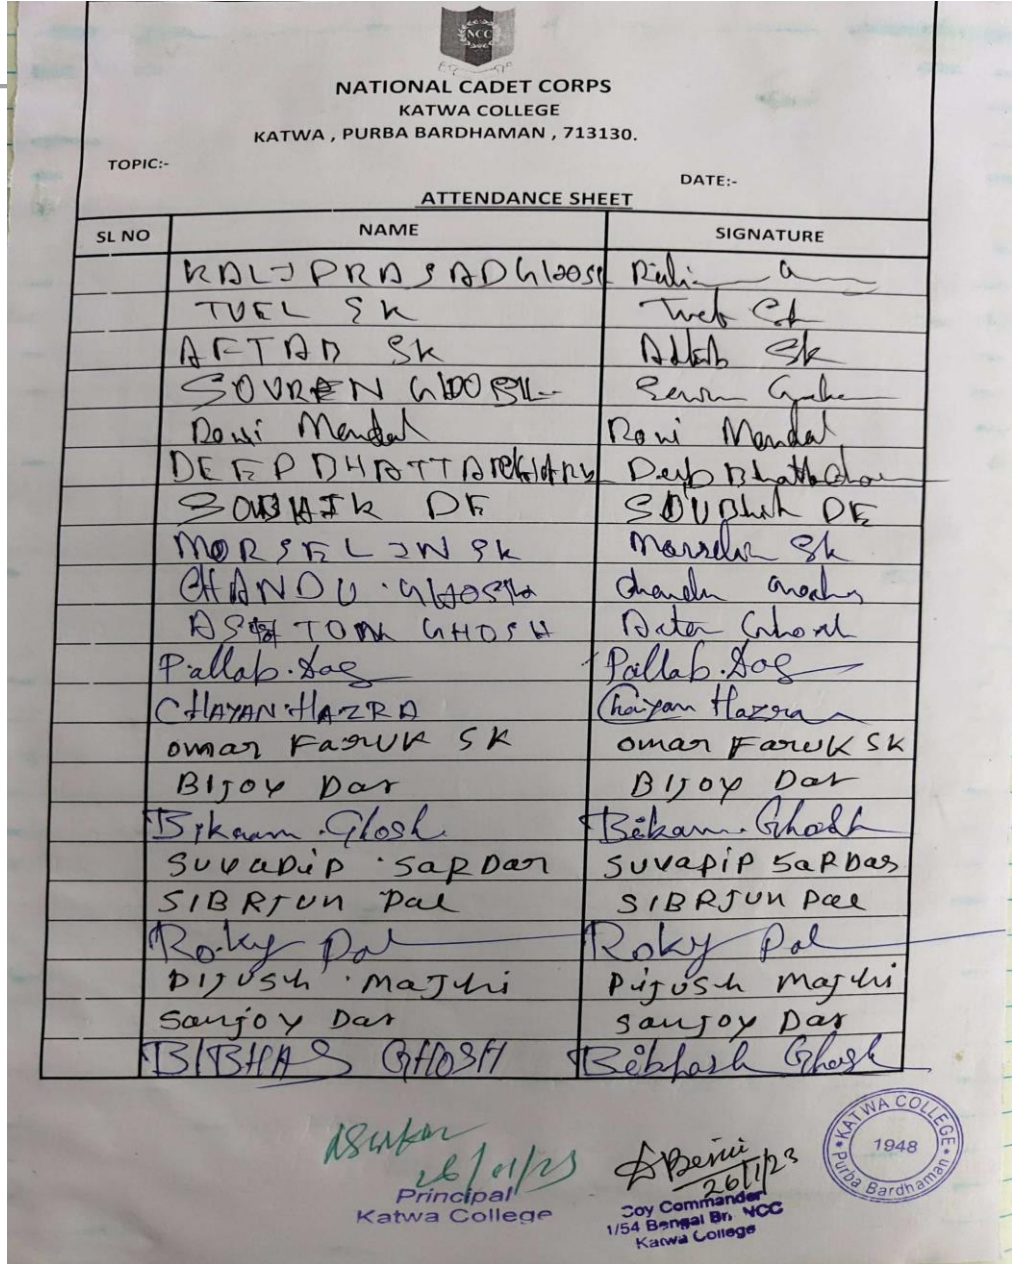 NCC
NATIONAL CADET CORPS
KATWA COLLEGE
KATWA , PURBA BARDHAMAN , 713130.
TOPIC:-
DATE:-
ATTENDANCE SHEET
SL NO NAME SIGNATURE
KALI PRASAD Ghosh
TUEL SK
AFTAB SK Aftab Sk
SOVREN
Roni Mondal Roni Mondal
DEEP BHATTACHARYA Deep
SOUBHIK DE SOUBhik DE
MORSELIN SK Morselin Sk
CHANDU . GHOSH Chandu
GHOSH Ghosh
Pallab . Das Pallab . Das
CHAYAN HAZRA Chayan Hazra
Omar Faruk SK Omar Faruk SK
Bijoy Das Bijoy Das
Bikram . Ghosh Bikram . Ghosh
SUVADIP . SARDAR SUVADIP SARDAR
SIBRJUN Pal SIBRJUN Pal
Roky Pal Roky Pal
Pijush . Majhi Pijush Majhi
Sanjoy Das Sanjoy Das
BIBHAS GHOSH Bibhash Ghosh
26/01/23
26/1/23
Principal
Katwa College
Coy Commander
1/54 Bengal Bn. NCC
Katwa College
KATWA COLLEGE
1948
Purba Bardhaman